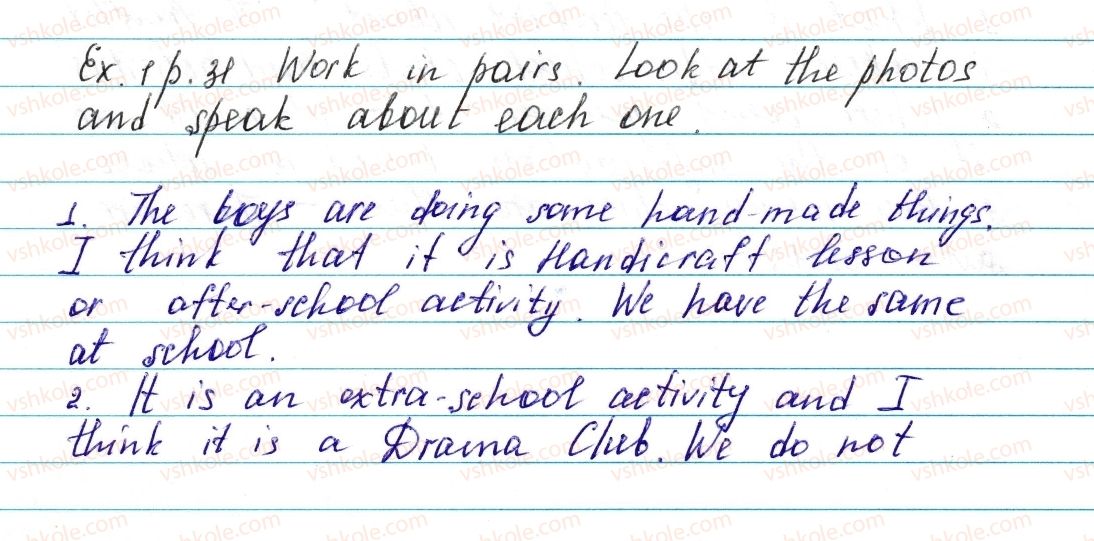 Ex. 1 p. 31 Work in pairs. Look at the photos
and speak about each one.
1. The boys are doing some hand-made things.
I think that it is Handicraft lesson
or after-school activity. We have the same
at school.
2. It is an extra-school activity and I
think it is a Drama Club. We do not
vshkole.com